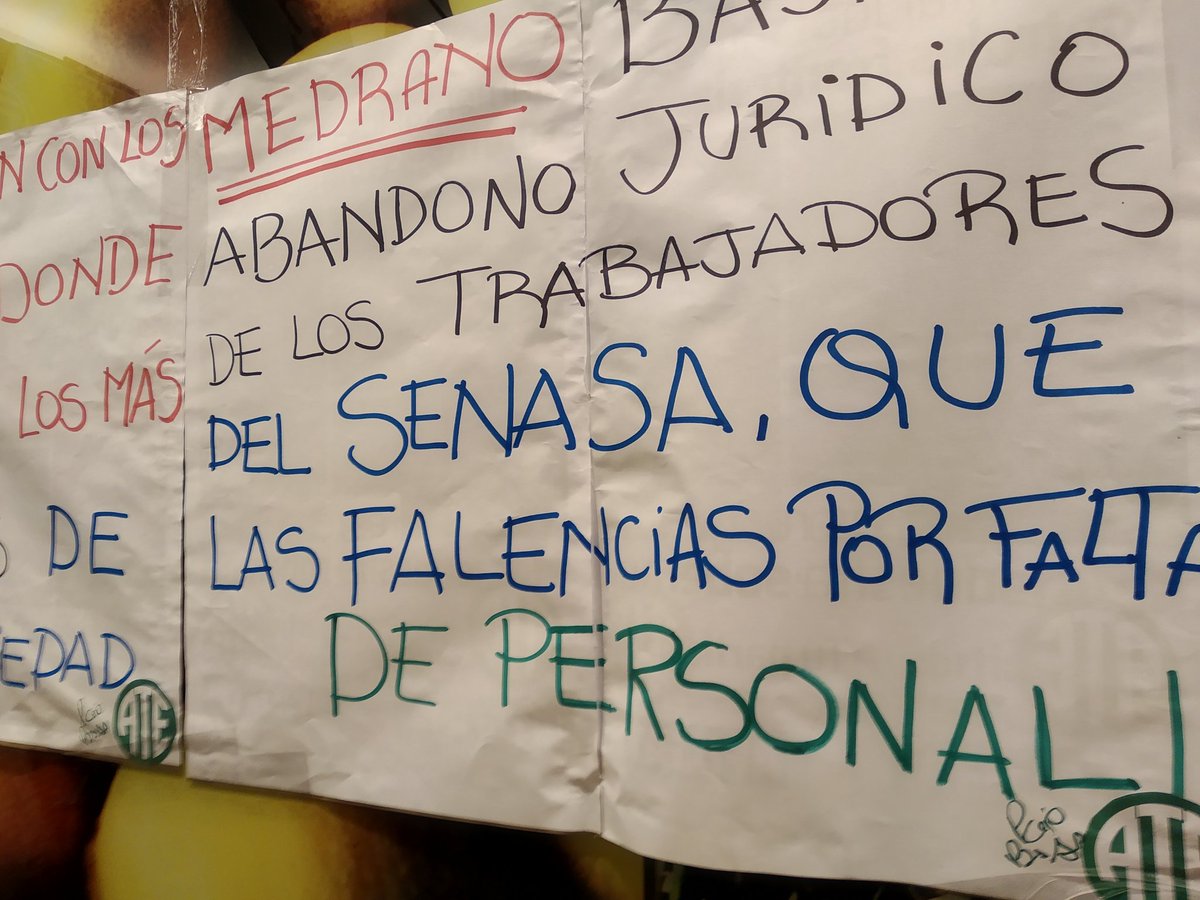 N CON LOS
DONDE
LOS MÁS
DE
EDAD
ATE
MEDRANO
ABANDONO JURIDICO
DE LOS TRABAJADORES
DEL SENASA, QUE
LAS FALENCIAS POR FALTA
DE PERSONAL
ATE